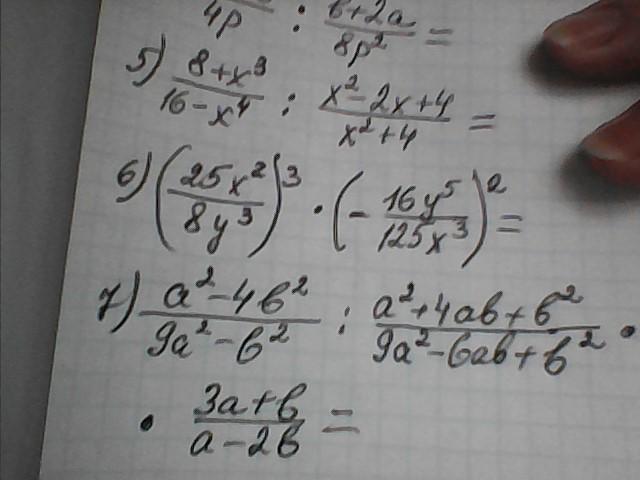 4p : b+2a / 8p² =
5) 8+x³ / 16-x⁴ : x²-2x+4 / x²+4 =
6) (25x² / 8y³)³ · (- 16y⁵ / 125x³)² =
7) a²-4b² / 9a²-b² : a²+4ab+b² / 9a²-6ab+b² ·
· 3a+b / a-2b =